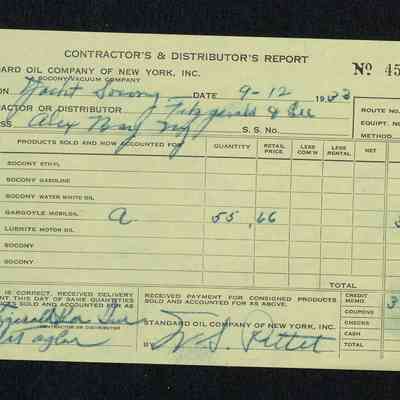 CONTRACTOR'S & DISTRIBUTOR'S REPORT
DARD OIL COMPANY OF NEW YORK, INC. Nº 45
SOCONY-VACUUM COMPANY
ON Yacht Socony DATE 9-12 1933
ACTOR OR DISTRIBUTOR Fitzgerald & Lee ROUTE NO.
SS Alex Bay NY S. S. NO. EQUIPT. NO
AMOUNT
PRODUCTS SOLD AND NOW ACCOUNTED FOR QUANTITY RETAIL PRICE LESS COM'N LESS RENTAL NET
SOCONY ETHYL
SOCONY GASOLINE
SOCONY WATER WHITE OIL
GARGOYLE MOBILOIL A 55 .66 3
LUBRITE MOTOR OIL
SOCONY
SOCONY
TOTAL
IS CORRECT. RECEIVED DELIVERY
ENT, THIS DAY OF SAME QUANTITIES
UCTS SOLD AND ACCOUNTED FOR AS
RECEIVED PAYMENT FOR CONSIGNED PRODUCTS
SOLD AND ACCOUNTED FOR AS ABOVE.
CREDIT MEMO. 3
COUPONS
STANDARD OIL COMPANY OF NEW YORK, INC. CHECKS
CONTRACTOR OR DISTRIBUTOR
CASH
BY
TOTAL